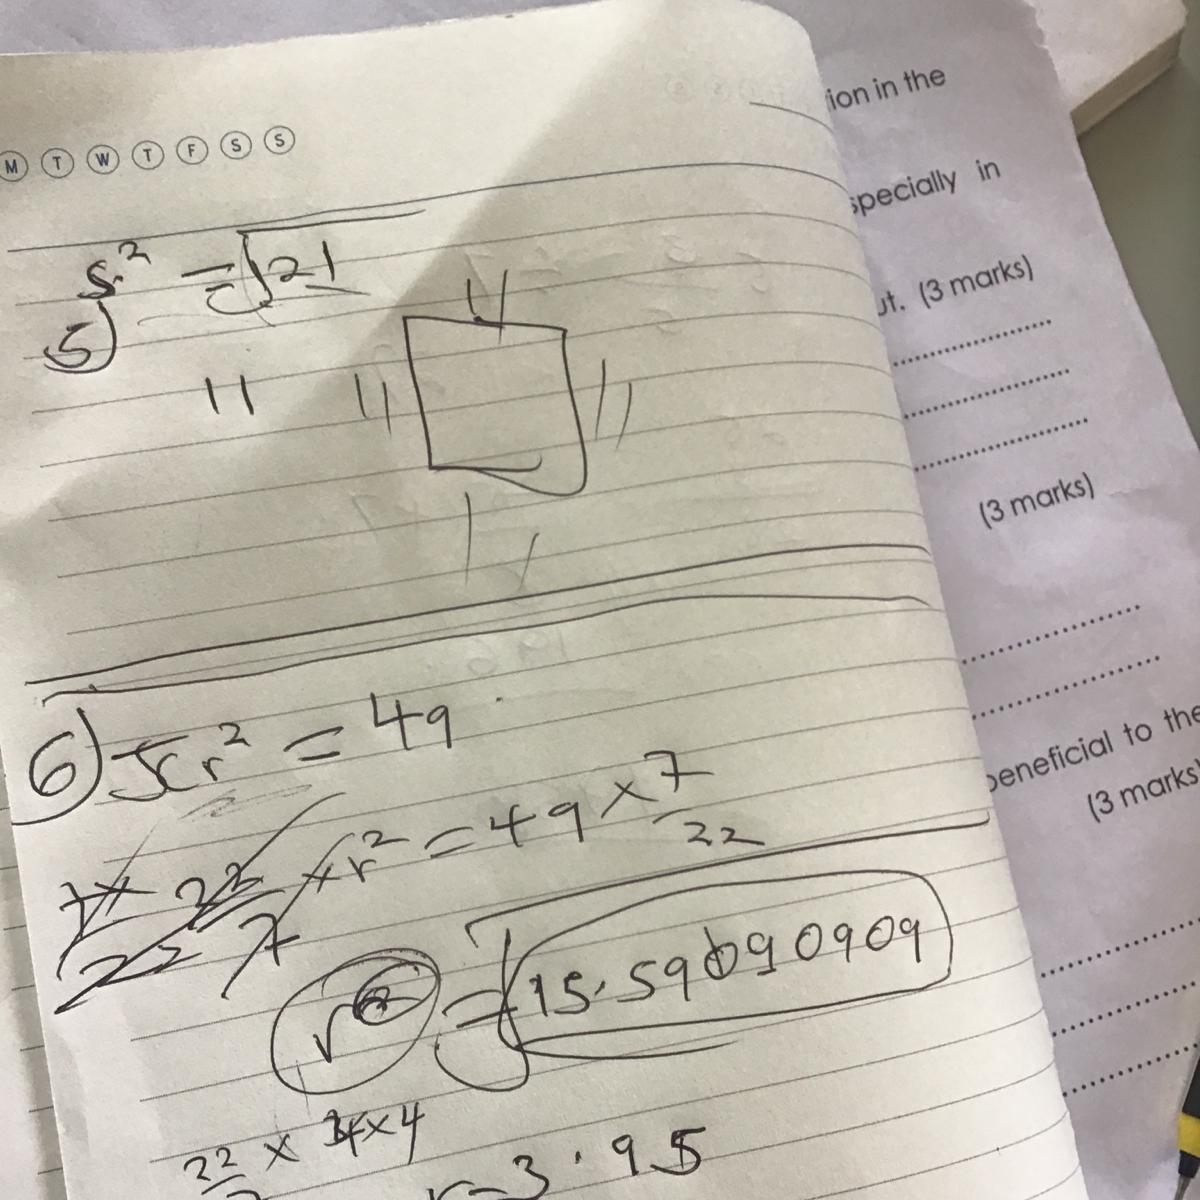 M T W T F S S
s² = √121
5)
11
11
11
11
11
6) πr² = 49
7 × 22 × r² = 49 × 7
22 7 22
r² = √15.59090909
22 × 4 × 4
r = 3.95
ion in the
specially in
ut. (3 marks)
(3 marks)
beneficial to the
(3 marks)